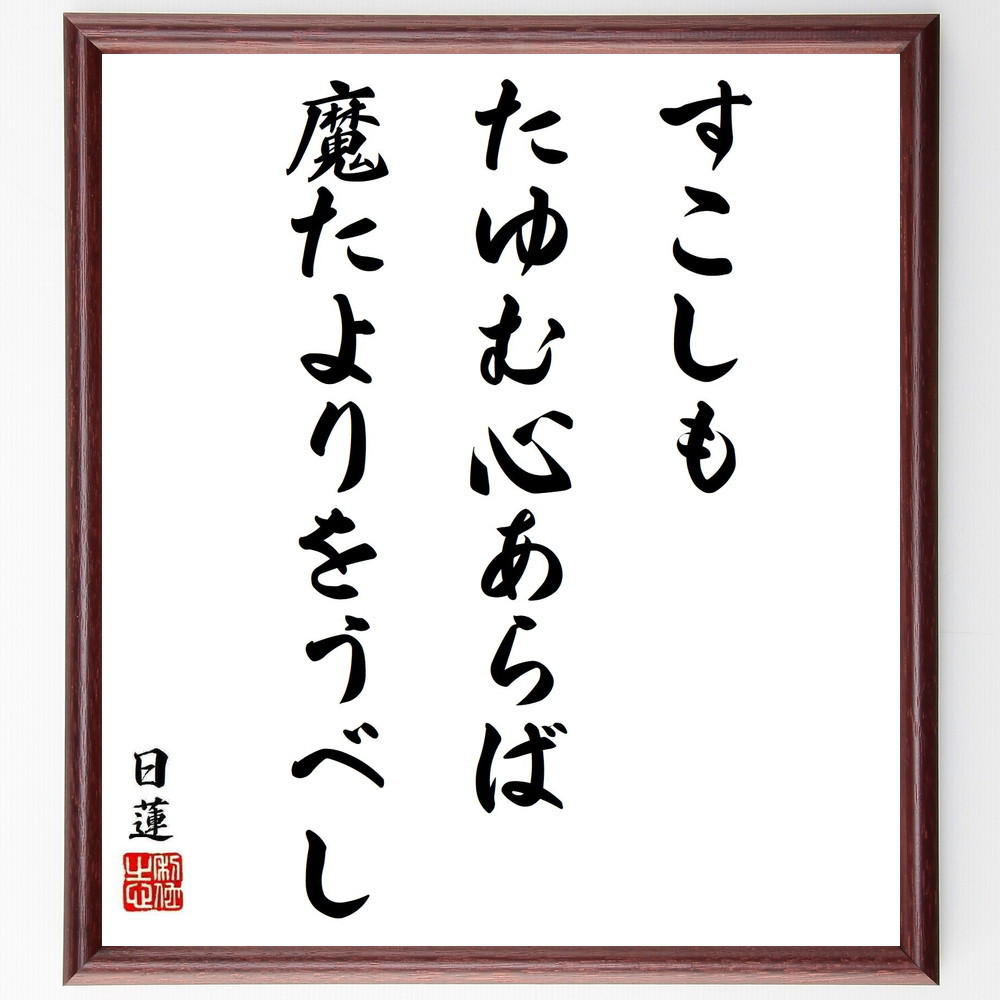 すこしも
たゆむ心あらば
魔たよりをうべし
日蓮